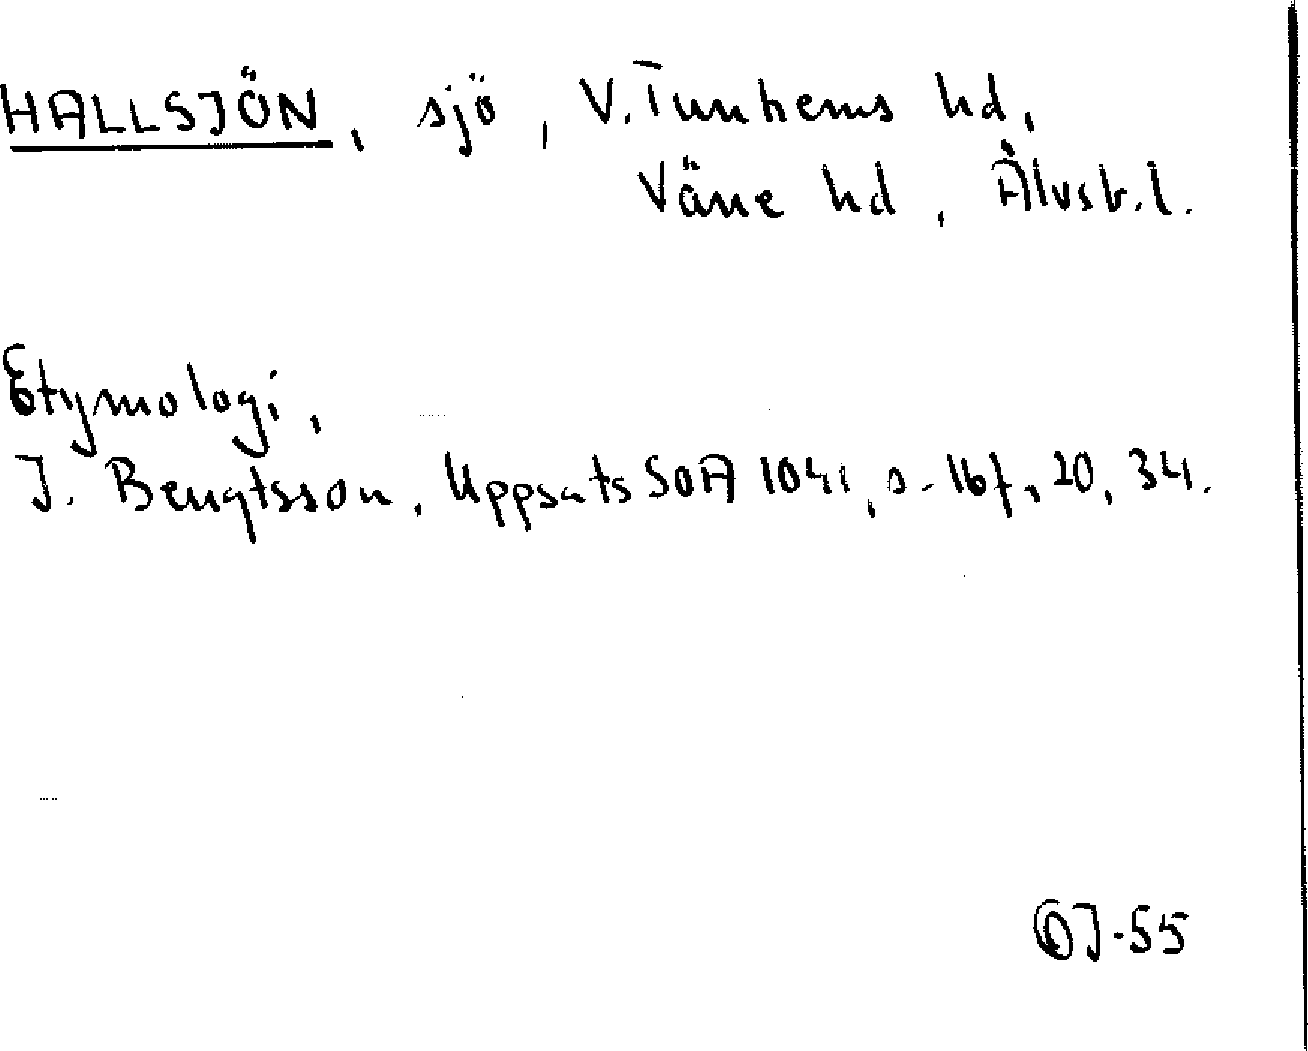 HALLSJÖN, sjö, V. Tunhems hd,
Väne hd, Älvsb. l.
Etymologi,
J. Bengtsson, Uppsats SOA, s. 16f, 20, 34.
J-55